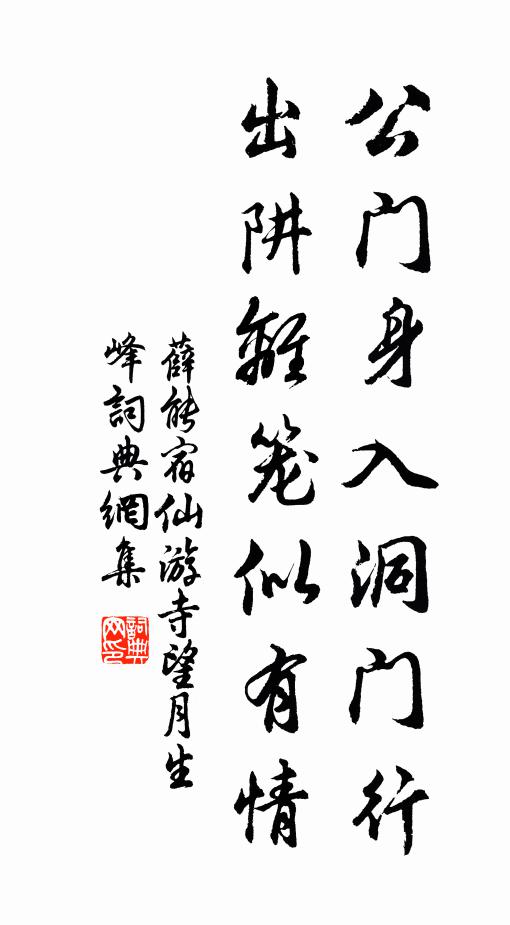 公门身入洞门行
出阱離笼似有情
薛能宿仙游寺望月生
峰詞典網集
詞典网印